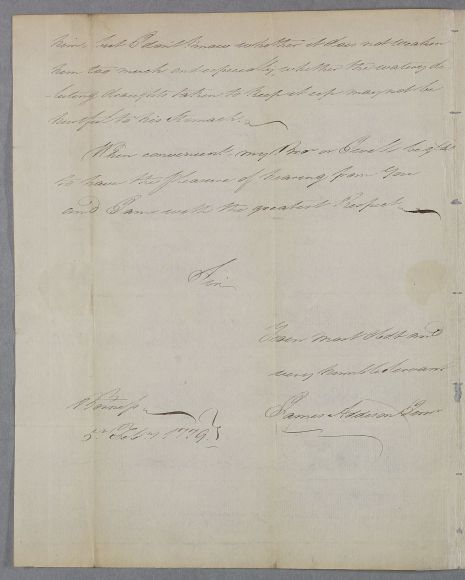 him but I don't know whether it does not weaken
him too much and especially whether the watery di
luting draughts taken to keep it up may not be
hurtful to his Stomach.
When convenient, my Bror or I will be glad
to have the pleasure of hearing from You
and I am with the greatest Respect
Sir
Your most Obedt and
very humble Servant
James Addison Junr
5th Febry 1779